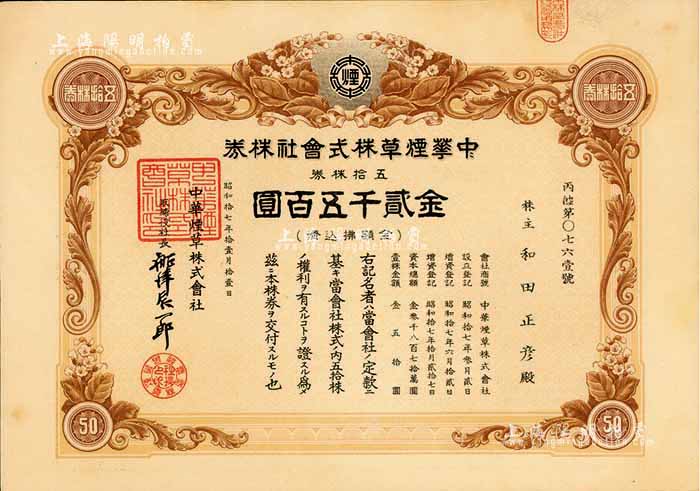 上海陽明拍賣
www.yangmingauction.com
煙
五拾株券
五拾株券
中華煙草株式會社株券
五拾株券
金貳千五百圓
(金額拂込濟)
丙 第〇七六壹號
株主 和田正彦殿
會社商號 中華煙草株式會社
設立登記 昭和拾七年參月貳日
增資登記 昭和拾七年六月拾貳日
增資登記 昭和拾七年拾月貳拾七日
資本總額 金參千八百七拾萬圓
壹株金額 金五拾圓
右記名者ハ當會社ノ定款ニ
基キ當會社株式ノ內五拾株
ノ權利ヲ有スルコトヲ證スル爲メ
玆ニ本株券ヲ交付スルモノ也
昭和拾七年拾壹月拾壹日
中華煙草株式會社
社長
50
50
上海陽明拍賣
www.yangmingauction.com